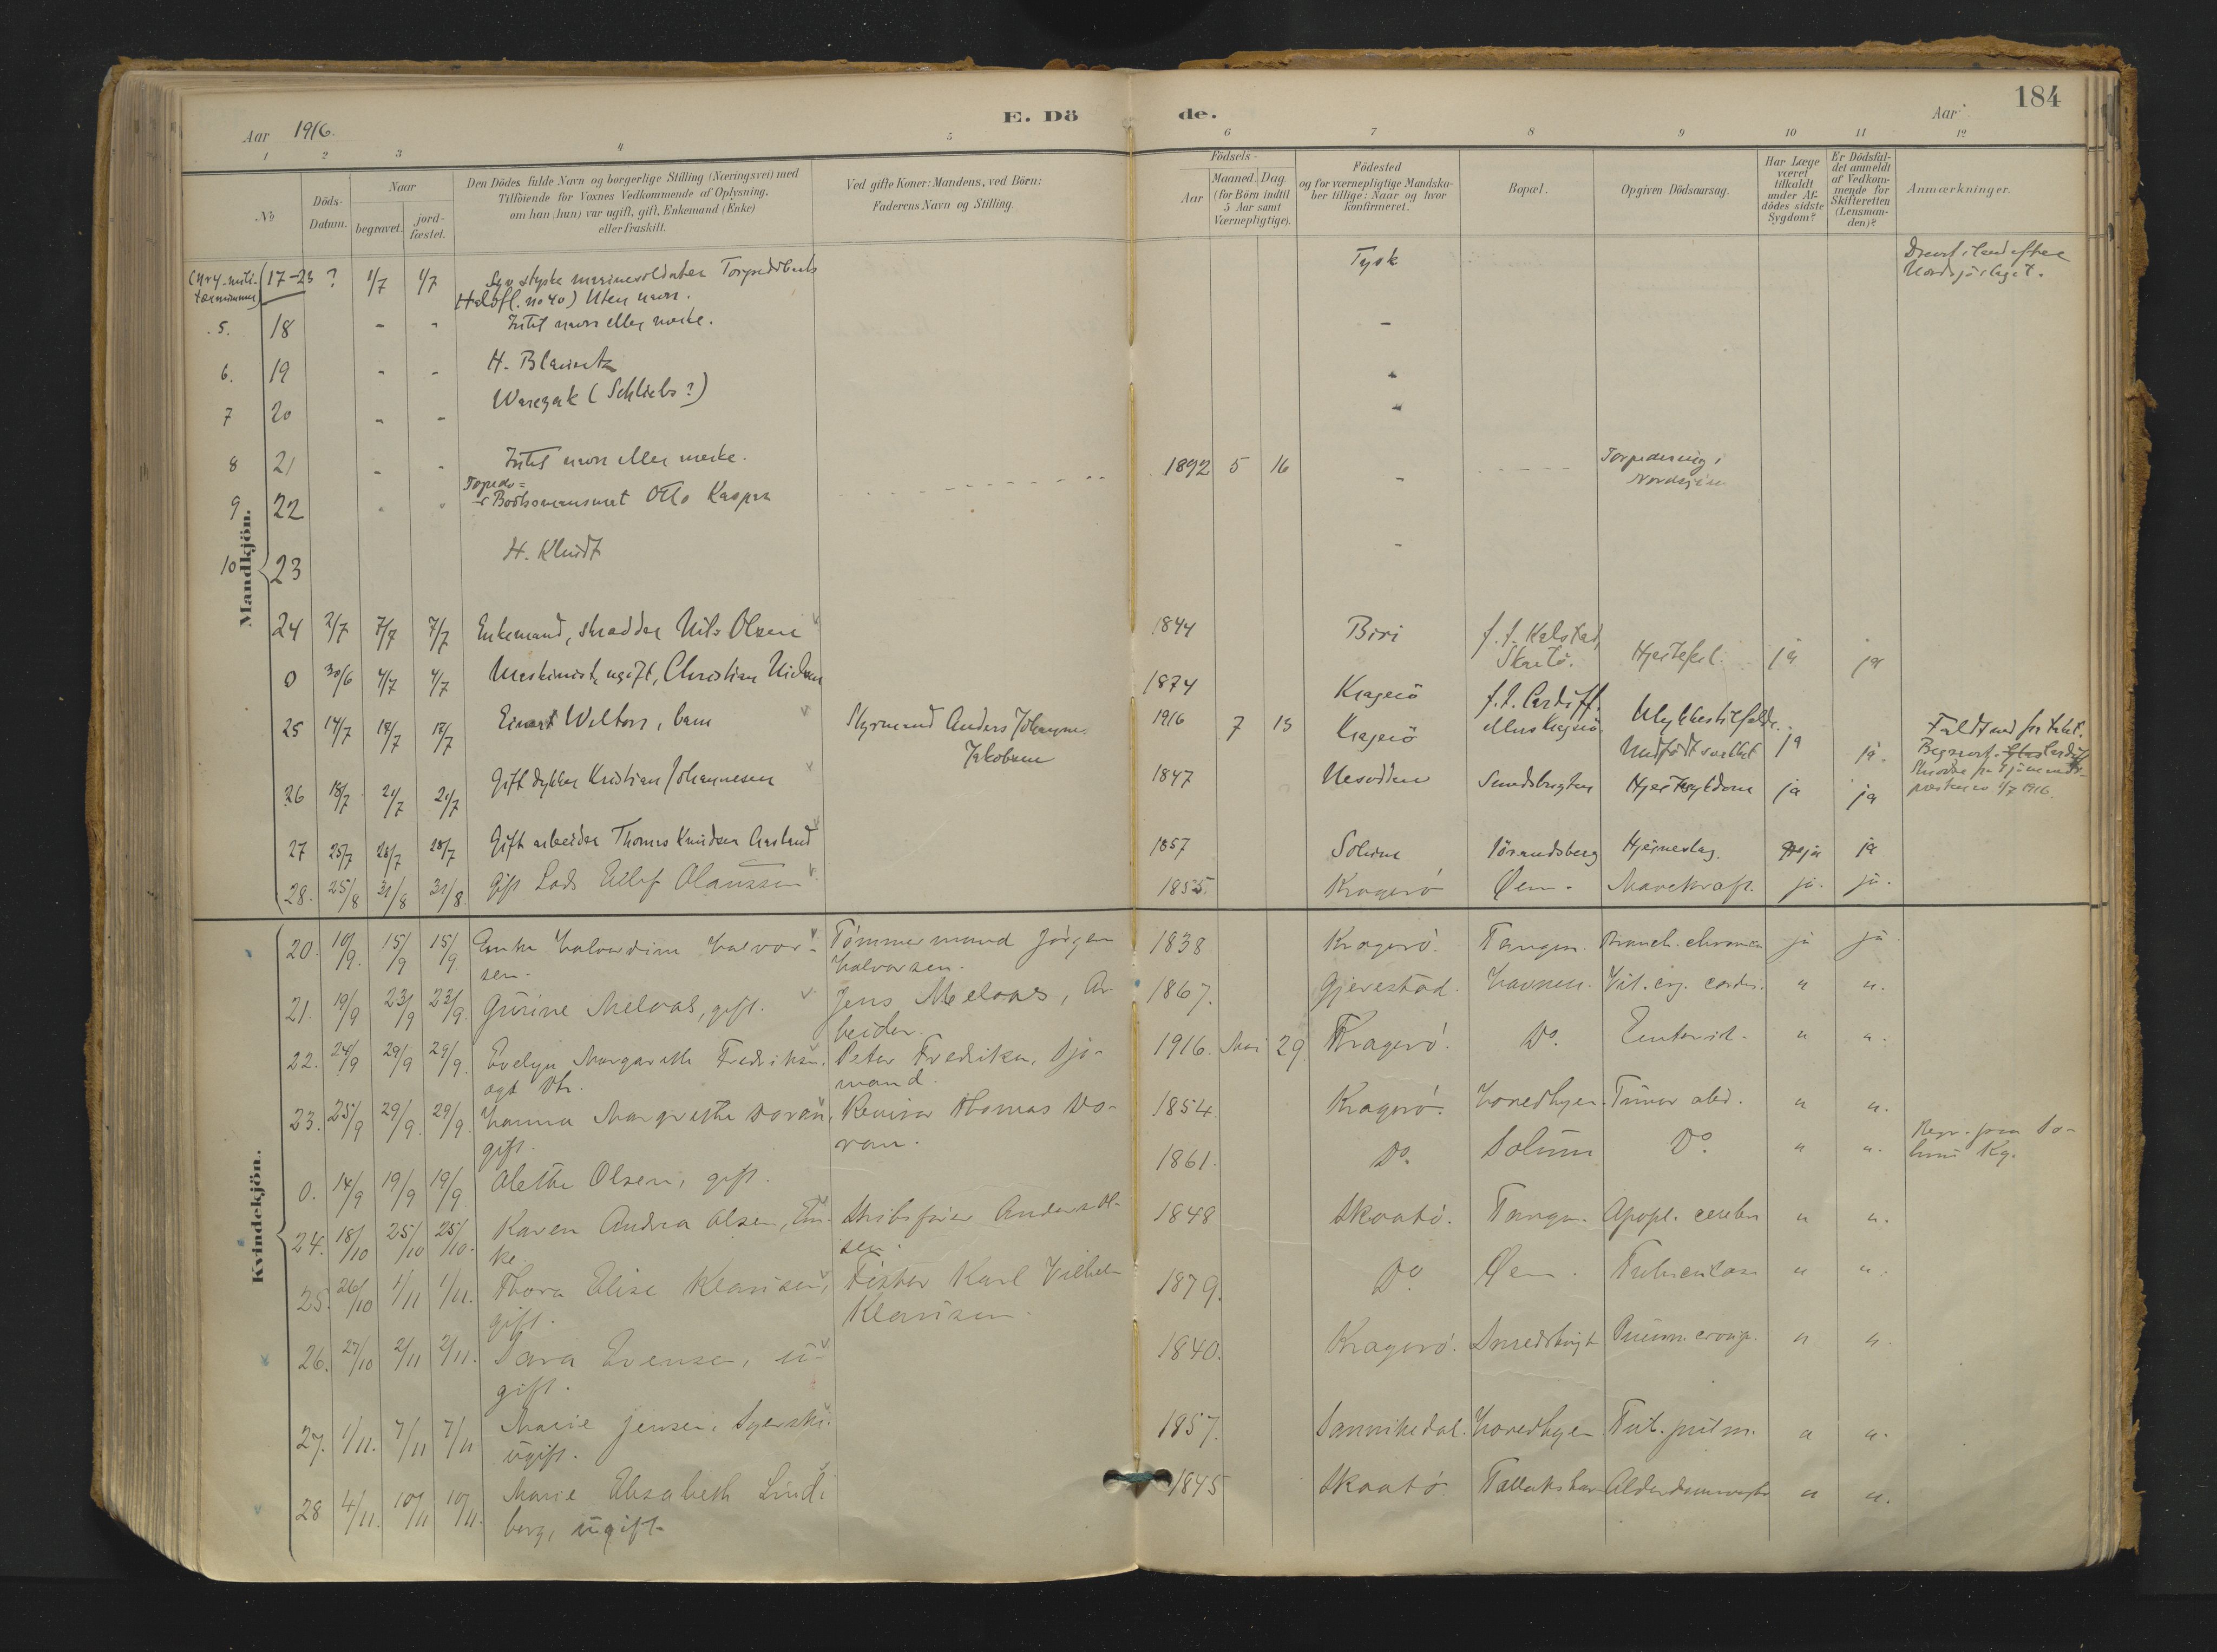 184
E. Dö de.
Aar 1916.
Aar
1 2 3 4 5 6 7 8 9 10 11 12
No
Döds-Datum.
Naar begravet. jordfæstet.
Den Dödes fulde Navn og borgerlige Stilling (Næringsvei) med
Tilföiende for Voxnes Vedkommende af Oplysning,
om han (hun) var ugift, gift, Enkemand (Enke)
eller fraskilt.
Ved gifte Koner: Mandens, ved Börn:
Faderens Navn og Stilling.
Födsels-
Aar
Maaned. Dag.
(for Börn indtil
5 Aar samt
Værnepligtige).
Födested
og for værnepligtige Mandska-
ber tillige: Naar og hvor
konfirmeret.
Bopæl.
Opgiven Dödsaarsag.
Har Læge
været
tilkaldt
under Af-
dödes sidste
Sygdom?
Er Dödsfal-
det anmeldt
af Vedkom-
mende for
Skifteretten
(Lensman-
den)?
Anmærkninger.
Mandkjön.
17-23 ? 1/7 1/7 Syv tyske marinesoldater Tysk Drevet iland efter
no 40) Uten navn. Nordsjöslaget.
5. 18 - - Intet navn eller merke. -
6. 19 - - H. -
7 20 - - (Schliebs?) -
8 21 - - Intet navn eller merke.
9 22 - - Torpedo= Otto Kasper 1892 5 16 - Torpedering i
Nordsjöen
10 23 H. Klindt -
24 2/7 7/7 7/7 Enkemand, skrædder Nils Olsen 1844 Biri f. t. Kalstad,
Skaatö. Hjertefeil. ja ja
0 30/6 4/7 4/7 Maskinist, ugift, Christian 1874 Kragerö f. t. Cardiff. Ulykkestilfælde.
25 14/7 18/7 18/7 Einar Welton, barn Styrmand Anders Johannes
Jakobsen 1916 7 13 Kragerö Kragerö Medfödt svakhet ja ja.
26 18/7 21/7 21/7 Gift dykker Kristian Johannesen 1847 Nesodden Smedsbugten Hjertesykdom ja ja
27 25/7 28/7 28/7 Gift arbeider Thomas Knudsen Aasland 1857 Solum Hjerneslag. ja ja
28. 25/8 31/8 31/8 Gift Lods Ellef Olaussen 1855. Kragerö Øen. Mavekræft. ja. ja.
Kvindekjön.
20. 10/9. 15/9 15/9. Enke Halvardine Halvor-
sen. Tömmermand Jörgen
Halvorsen. 1838 Kragerö. Tangen. Bronch. chronica ja ja
21. 19/9 23/9 23/9. Gurine Melaas, gift. Jens Melaas, Ar-
beider. 1867. Gjerestad. Havnen. Vit. org. cordis. " ".
22. 24/9 29/9 29/9. Evelyn Margarethe Fredriksen,
Peter Fredriksen, Sjö-
mand. 1916. Mai 29. Kragerö. Do. Enterit. " ".
23. 25/9 29/9. 29/9. Hanna Margrethe Doran,
gift. Revisor Thomas Do-
ran. 1854. Kragerö. Hovedbyen. Tumor abd. " ".
0. 14/9 19/9 19/9 Alethe Olsen, gift. 1861. Do. Solum Do. " ". Begr. paa So-
lum Kg.
24. 18/10 25/10 25/10. Karen Andrea Olsen, En-
ke. Skibsförer Anders Ol-
sen. 1848 Skaatö. Tangen. Apopl. cerebri " ".
25. 26/10 1/11 1/11. Thora Elise Klausen,
gift. Fisker Karl Vilhelm
Klausen. 1879. Do. Øen. Tuberculose " ".
26. 27/10 2/11 2/11. Sara Evensen, u-
gift. 1840. Kragerö. Smedsbugt. Pneum. croup. " ".
27. 1/11. 7/11 7/11 Marie Jensen, Syerske.
ugift. 1857. Sannikedal. Hovedbyen Tub. pulm. " ".
28 4/11. 10/11 10/11. Marie Elisabeth Lind-
berg, ugift. 1845 Skaatö. Alderdomssvaghed " ".